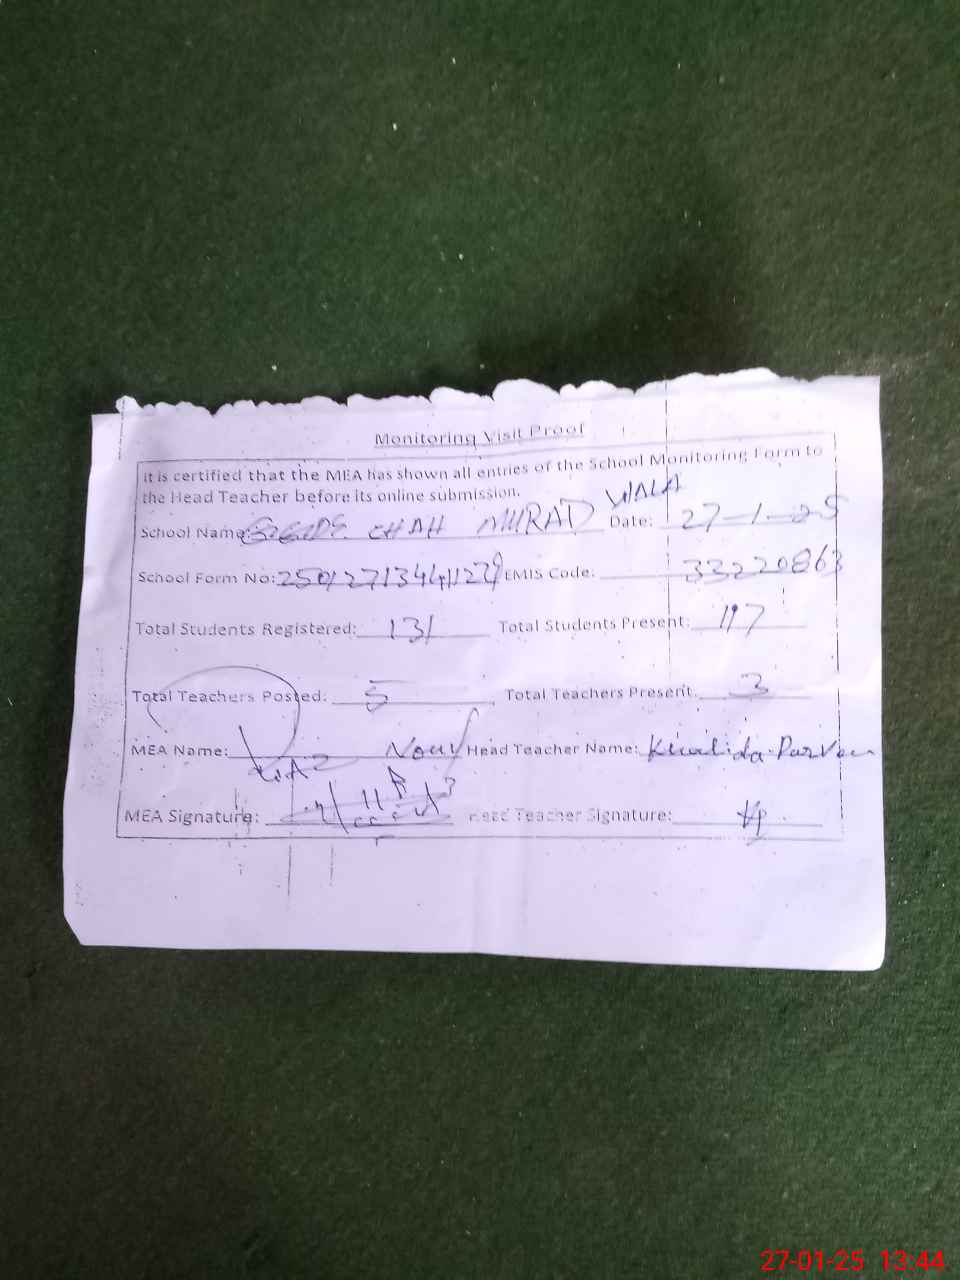 Monitoring Visit Proof
It is certified that the MEA has shown all entries of the School Monitoring Form to
the Head Teacher before its online submission.
School Name: CHAH MURAD WALA Date: 27-1-25
School Form No: EMIS Code: 33220863
Total Students Registered: 131 Total Students Present: 117
Total Teachers Posted: 5 Total Teachers Present: 3
MEA Name: Head Teacher Name: Khalida Parveen
MEA Signature: Head Teacher Signature:
27-01-25 13:44